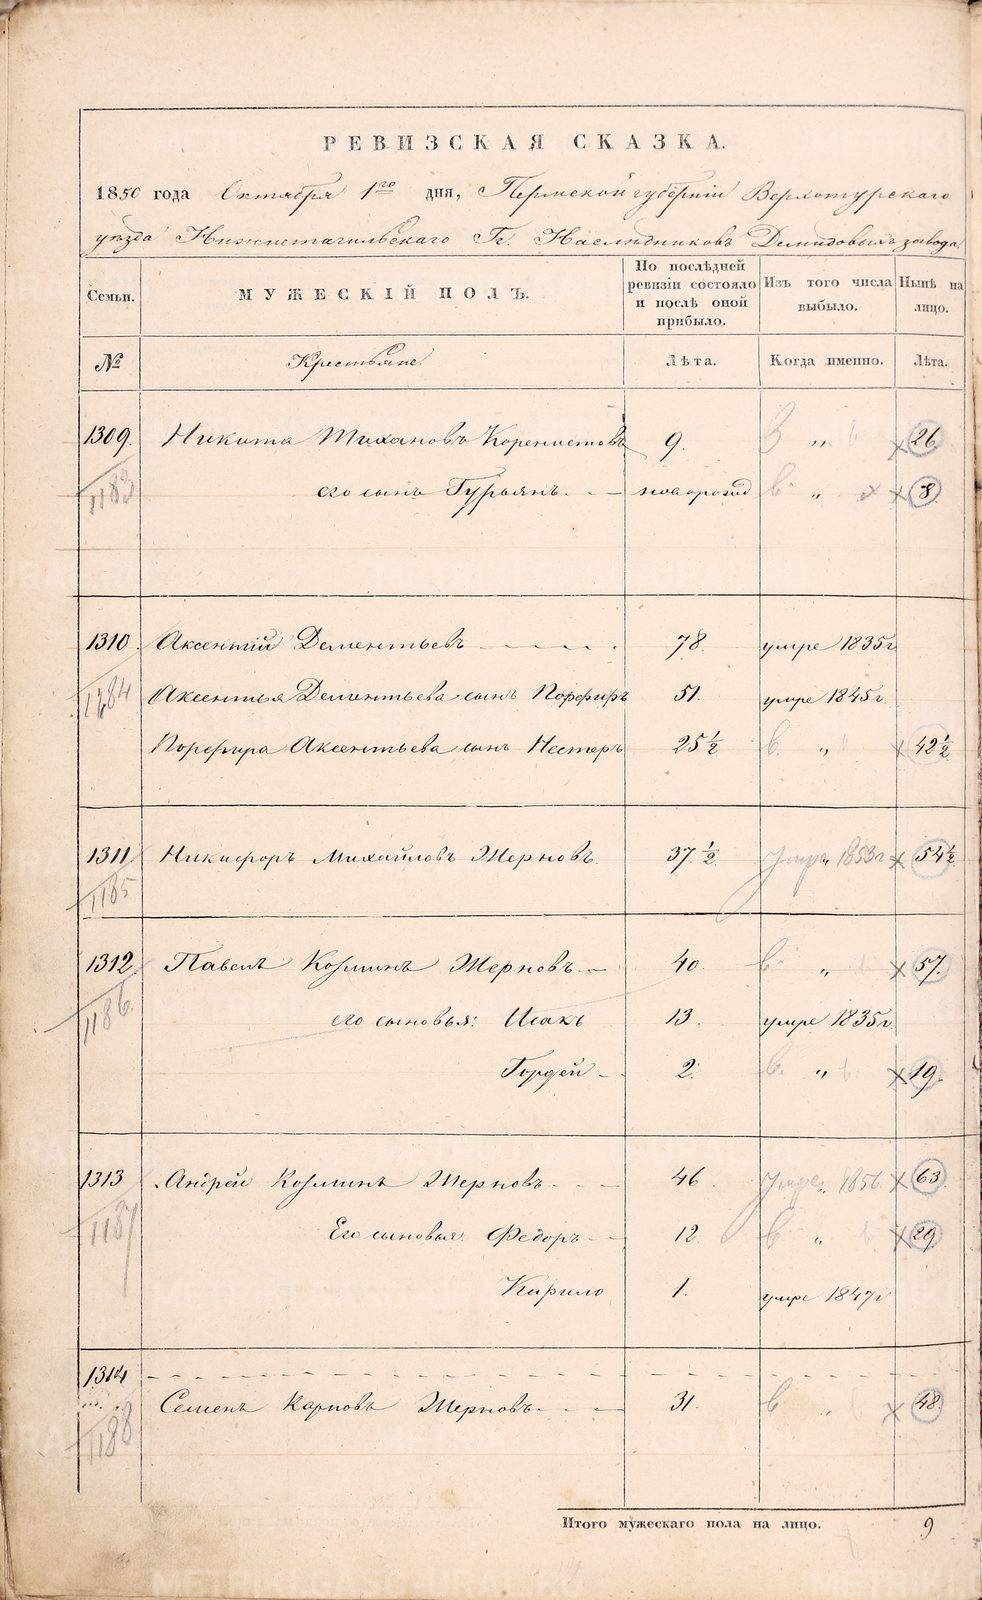 РЕВИЗСКАЯ СКАЗКА.
1850 года Октября 1го дня, Пермской губернiи Верхотурскаго
уѣзда Нижнетагильскаго Гг. Наслѣдниковъ Демидовыхъ завода
Семьи. МУЖЕСКIЙ ПОЛЪ. По послѣдней ревизiи состояло и послѣ оной прибыло. Изъ того числа выбыло. Нынѣ на лицо.
№ Крестьяне Лѣта. Когда именно. Лѣта.
1309. Никита Тихановъ Коренистовъ 9. „ 26
1183 его сынъ Гурьянъ. новорожд „ 8
1310. Аксентiй Дементьевъ 78. умре 1835г
1184 Аксентья Дементьева сынъ Порфиръ 51. умре 1845г.
Порфира Аксентьева сынъ Нестеръ 25 ½ „ 42 ½
1311 Никифоръ Михайловъ Жерновъ 37 ½ Умре 1853г 54 ½
1185
1312. Павелъ Козминъ Жерновъ 40. „ 57.
1186 его сыновья: Исакъ 13. умре 1835г.
Гордей 2. „ 19.
1313 Андрей Козминъ Жерновъ 46. Умре 1856 63
1187 Его сыновья Федоръ 12 „ 29
Кирило 1. умре 1847г
1314
Семенъ Карповъ Жерновъ 31. „ 48
1188
Итого мужескаго пола на лицо. 9